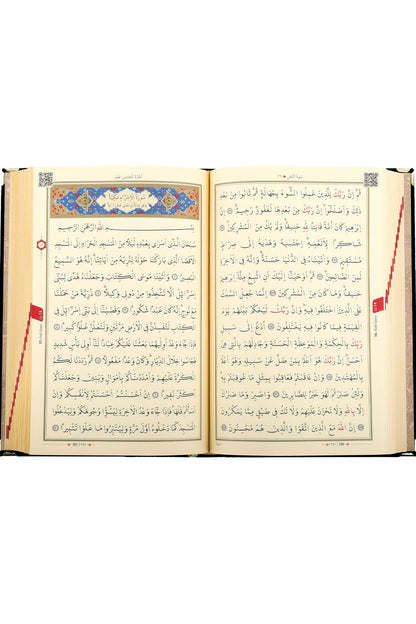 سورة النحل ١٦
ثُمَّ اِنَّ رَبَّكَ لِلَّذِينَ عَمِلُوا السُّوءَ بِجَهَالَةٍ ثُمَّ تَابُوا مِنْ بَعْدِ
ذٰلِكَ وَاَصْلَحُوا اِنَّ رَبَّكَ مِنْ بَعْدِهَا لَغَفُورٌ رَحِيمٌ اِنَّ
اِبْرٰهِيمَ كَانَ اُمَّةً قَانِتًا لِلّٰهِ حَنِيفًا وَلَمْ يَكُ مِنَ الْمُشْرِكِينَ
شَاكِرًا لِاَنْعُمِهِ اِجْتَبٰيهُ وَهَدٰيهُ اِلٰى صِرَاطٍ
مُسْتَقِيمٍ وَاٰتَيْنَاهُ فِي الدُّنْيَا حَسَنَةً وَاِنَّهُ فِي الْاٰخِرَةِ
لَمِنَ الصَّالِحِينَ ثُمَّ اَوْحَيْنَا اِلَيْكَ اَنِ اتَّبِعْ مِلَّةَ اِبْرٰهِيمَ
حَنِيفًا وَمَا كَانَ مِنَ الْمُشْرِكِينَ اِنَّمَا جُعِلَ السَّبْتُ
عَلَى الَّذِينَ اخْتَلَفُوا فِيهِ وَاِنَّ رَبَّكَ لَيَحْكُمُ بَيْنَهُمْ يَوْمَ
الْقِيٰمَةِ فِيمَا كَانُوا فِيهِ يَخْتَلِفُونَ اُدْعُ اِلٰى سَبِيلِ
رَبِّكَ بِالْحِكْمَةِ وَالْمَوْعِظَةِ الْحَسَنَةِ وَجَادِلْهُمْ بِالَّتِي هِيَ
اَحْسَنُ اِنَّ رَبَّكَ هُوَ اَعْلَمُ بِمَنْ ضَلَّ عَنْ سَبِيلِهِ وَهُوَ اَعْلَمُ
بِالْمُهْتَدِينَ وَاِنْ عَاقَبْتُمْ فَعَاقِبُوا بِمِثْلِ مَا عُوقِبْتُمْ بِهِ
وَلَئِنْ صَبَرْتُمْ لَهُوَ خَيْرٌ لِلصَّابِرِينَ وَاصْبِرْ وَمَا صَبْرُكَ
اِلَّا بِاللّٰهِ وَلَا تَحْزَنْ عَلَيْهِمْ وَلَا تَكُ فِي ضَيْقٍ مِمَّا يَمْكُرُونَ
اِنَّ اللّٰهَ مَعَ الَّذِينَ اتَّقَوْا وَالَّذِينَ هُمْ مُحْسِنُونَ
الجزء الخامس عشر
بِسْمِ اللّٰهِ الرَّحْمٰنِ الرَّحِيمِ
سُبْحَانَ الَّذِي اَسْرٰى بِعَبْدِهِ لَيْلًا مِنَ الْمَسْجِدِ الْحَرَامِ اِلَى الْمَسْجِدِ
الْاَقْصَا الَّذِي بَارَكْنَا حَوْلَهُ لِنُرِيَهُ مِنْ اٰيَاتِنَا اِنَّهُ هُوَ السَّمِيعُ
الْبَصِيرُ وَاٰتَيْنَا مُوسَى الْكِتَابَ وَجَعَلْنَاهُ هُدًى لِبَنِي
اِسْرَائِلَ اَلَّا تَتَّخِذُوا مِنْ دُونِي وَكِيلًا ذُرِّيَّةَ مَنْ حَمَلْنَا
مَعَ نُوحٍ اِنَّهُ كَانَ عَبْدًا شَكُورًا وَقَضَيْنَا اِلٰى بَنِي اِسْرَائِلَ فِي
الْكِتَابِ لَتُفْسِدُنَّ فِي الْاَرْضِ مَرَّتَيْنِ وَلَتَعْلُنَّ عُلُوًّا كَبِيرًا
فَاِذَا جَاءَ وَعْدُ اُولٰيهُمَا بَعَثْنَا عَلَيْكُمْ عِبَادًا لَنَا اُولِي بَأْسٍ شَدِيدٍ
فَجَاسُوا خِلَالَ الدِّيَارِ وَكَانَ وَعْدًا مَفْعُولًا ثُمَّ رَدَدْنَا لَكُمُ
الْكَرَّةَ عَلَيْهِمْ وَاَمْدَدْنَاكُمْ بِاَمْوَالٍ وَبَنِينَ وَجَعَلْنَاكُمْ
اَكْثَرَ نَفِيرًا اِنْ اَحْسَنْتُمْ اَحْسَنْتُمْ لِاَنْفُسِكُمْ وَاِنْ
اَسَأْتُمْ فَلَهَا فَاِذَا جَاءَ وَعْدُ الْاٰخِرَةِ لِيَسُوؤُا وُجُوهَكُمْ وَلِيَدْخُلُوا
الْمَسْجِدَ كَمَا دَخَلُوهُ اَوَّلَ مَرَّةٍ وَلِيُتَبِّرُوا مَا عَلَوْا تَتْبِيرًا